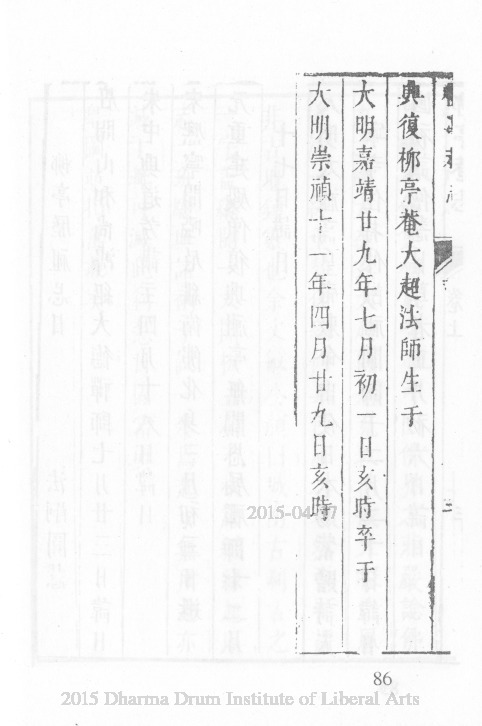 興復柳亭菴大超法師生于
大明嘉靖廿九年七月初一日亥時卒于
大明崇禎十一年四月廿九日亥時
2015-04-07
86
2015 Dharma Drum Institute of Liberal Arts